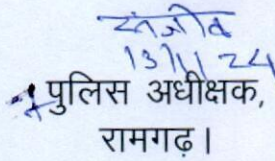 संजीव
13/11/24
पुलिस अधीक्षक,
रामगढ़।